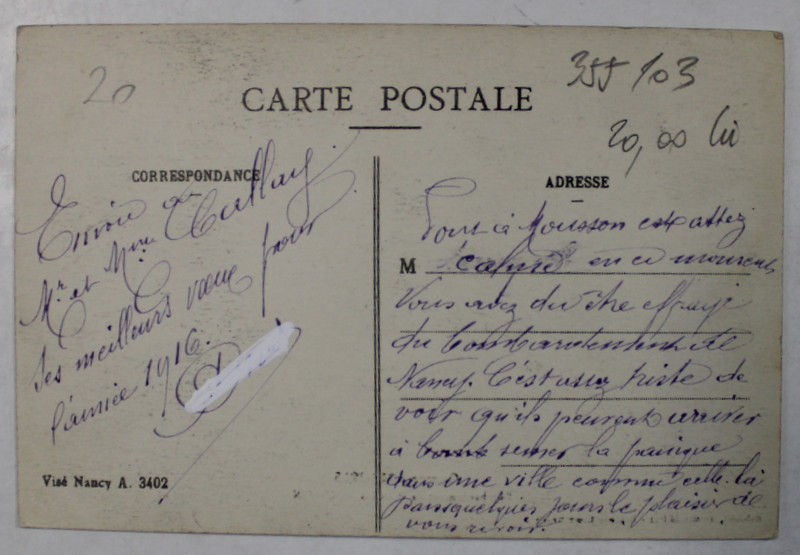 20
355 103
CARTE POSTALE
20,00 lei
CORRESPONDANCE
Envoie à
Mr et Mme
ses meilleurs vœux pour
l'année 1916.
Visé Nancy A. 3402
ADRESSE
Pont à Mousson est assez
M calme en ce moment
Vous avez du être effrayé
du bombardement de
Nancy. C'est assez triste de
voir qu'ils peuvent arriver
à semer la panique
dans une ville comme celle là
Dans quelques jours le plaisir de
vous revoir.